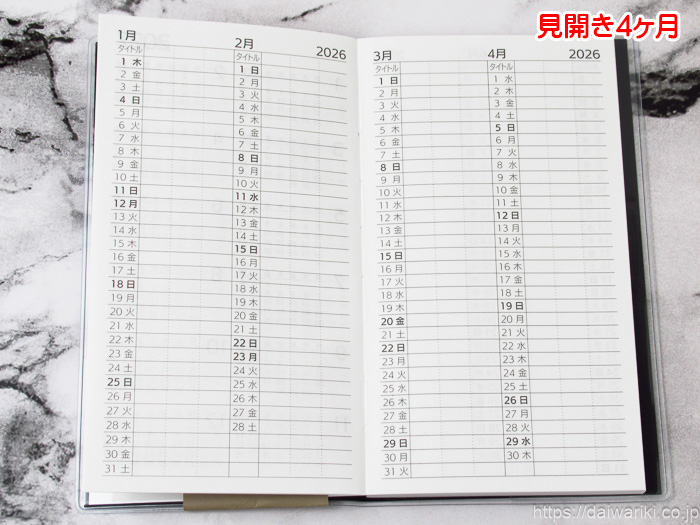 見開き4ヶ月
1月
タイトル
1 木
2 金
3 土
4 日
5 月
6 火
7 水
8 木
9 金
10 土
11 日
12 月
13 火
14 水
15 木
16 金
17 土
18 日
19 月
20 火
21 水
22 木
23 金
24 土
25 日
26 月
27 火
28 水
29 木
30 金
31 土
2月 2026
タイトル
1 日
2 月
3 火
4 水
5 木
6 金
7 土
8 日
9 月
10 火
11 水
12 木
13 金
14 土
15 日
16 月
17 火
18 水
19 木
20 金
21 土
22 日
23 月
24 火
25 水
26 木
27 金
28 土
3月
タイトル
1 日
2 月
3 火
4 水
5 木
6 金
7 土
8 日
9 月
10 火
11 水
12 木
13 金
14 土
15 日
16 月
17 火
18 水
19 木
20 金
21 土
22 日
23 月
24 火
25 水
26 木
27 金
28 土
29 日
30 月
31 火
4月 2026
タイトル
1 水
2 木
3 金
4 土
5 日
6 月
7 火
8 水
9 木
10 金
11 土
12 日
13 月
14 火
15 水
16 木
17 金
18 土
19 日
20 月
21 火
22 水
23 木
24 金
25 土
26 日
27 月
28 火
29 水
30 木
https://daiwariki.co.jp